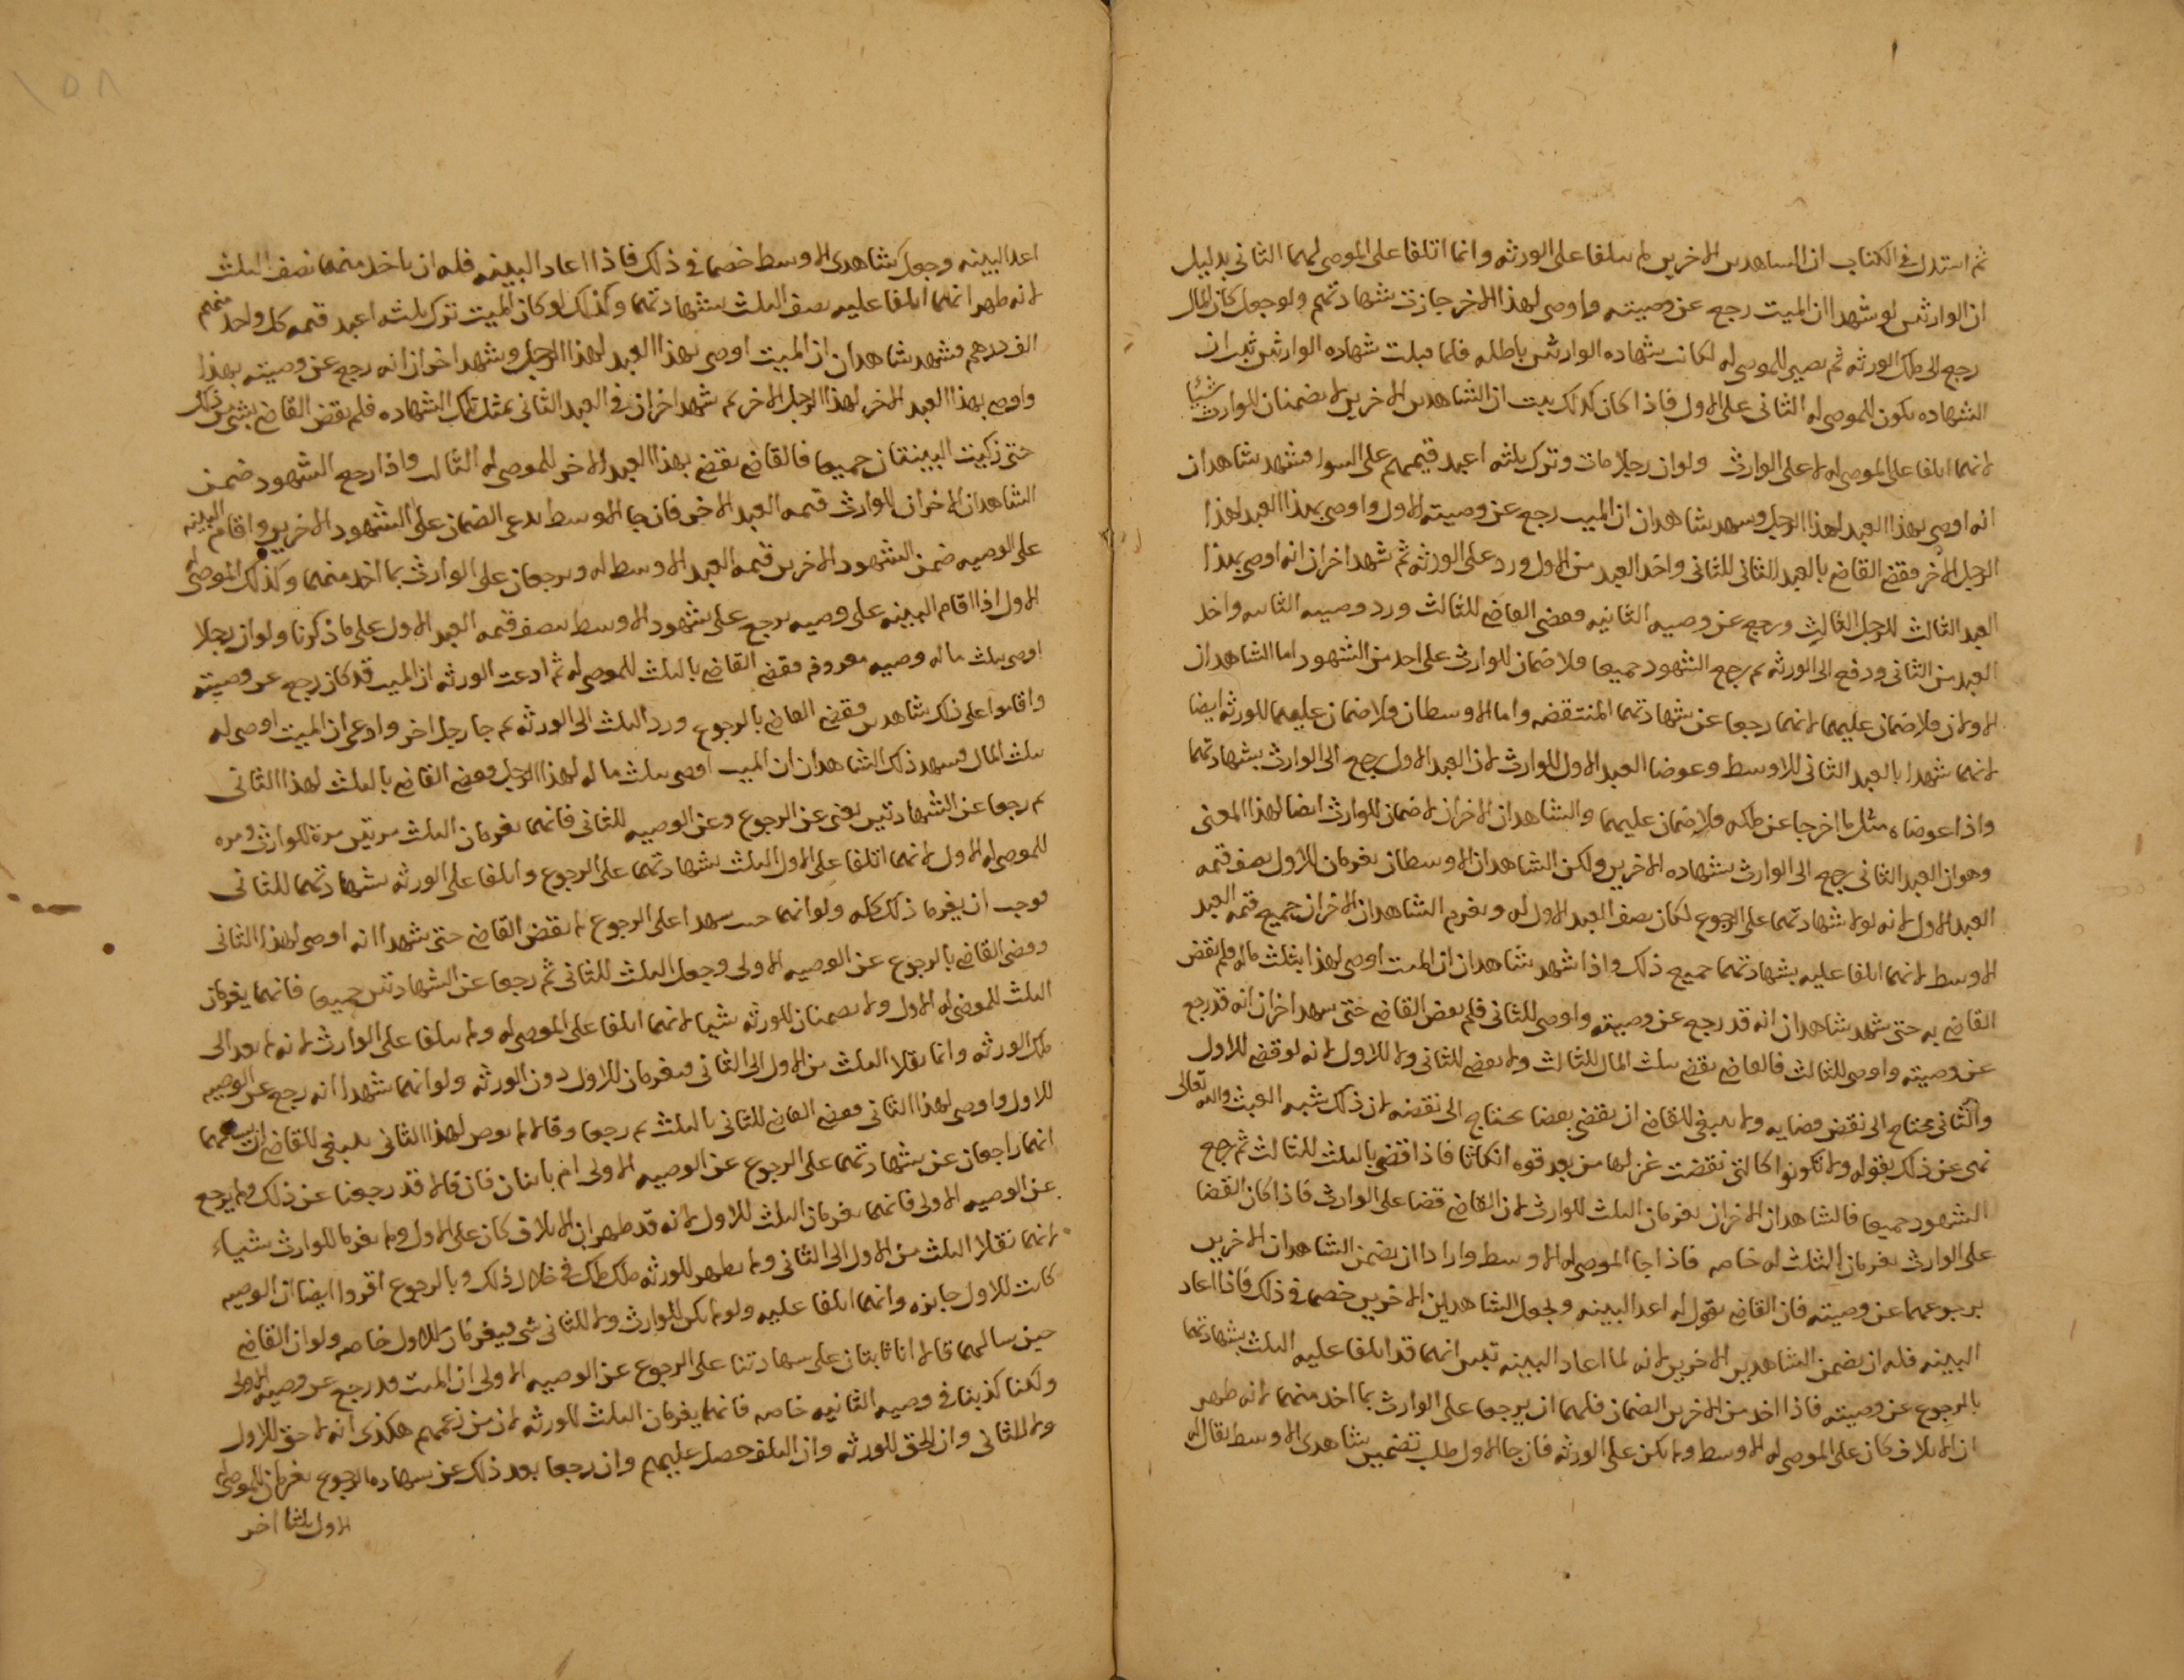 ثم استدل في الكتاب ان الشاهدين الاخرين لم يتلفا على الورثه وانما اتلفا على الموصى لهما الثاني بدليل
ان الوارثين لو شهدا ان الميت رجع عن وصيته واوصى لهذا الاخر جازت شهادتهم ولو جعل كان المال
رجع الى ملك الورثه ثم يصير للموصى له لكانت شهاده الوارثين باطله فلما قبلت شهاده الوارثين ثبت ان
الشهاده يكون للموصى له الثاني على الاول فاذا كان كذلك ثبت ان الشاهدين الاخرين لا يضمنان للوارث شيئا
لانهما اتلفا على الموصى له لا على الوارث ولو ان رجلا مات وترك ثلثه اعبد قيمتهم على السوا فشهد شاهدان
انه اوصى بهذا العبد لهذا الرجل وشهد شاهدان ان الميت رجع عن وصيته الاول واوصى بهذا العبد لهذا
الرجل الاخر فقضى القاضي بالعبد الثاني للثاني واخذ العبد من الاول ورد على الورثه ثم شهد اخران انه اوصى بهذا
العبد الثالث للرجل الثالث ورجع عن وصيه الثانيه وقضى القاضي للثالث ورد وصيه الثانيه واخذ
العبد من الثاني ودفع الى الورثه ثم رجع الشهود جميعا فلا ضمان للوارث على احد من الشهود اما الشاهدان
الاولان فلا ضمان عليهما لانهما رجعا عن شهادتهما المنتقضه واما الاوسطان فلا ضمان عليهما للورثه ايضا
لانهما شهدا بالعبد الثاني للاوسط وعوضا العبد الاول للوارث لان العبد الاول رجع الى الوارث بشهادتهما
واذا عوضاه مثل ما اخرجا عن ملكه فلا ضمان عليهما والشاهدان الاخران لا ضمان للوارث ايضا لهذا المعنى
وهو ان العبد الثاني رجع الى الوارث بشهاده الاخرين ولكن الشاهدان الاوسطان يغرمان للاول نصف قيمه
العبد الاول لانه لولا شهادتهما على الرجوع لكان نصف العبد الاول له ويغرم الشاهدان الاخران جميع قيمه العبد
الاوسط لانهما اتلفا عليه بشهادتهما جميع ذلك واذا شهد شاهدان ان الميت اوصى لهذا بثلث ماله فلم يقض
القاضي به حتى شهد شاهدان انه قد رجع عن وصيته واوصى للثاني فلم يقض القاضي حتى شهد اخران انه قد رجع
عن وصيته واوصى للثالث فالقاضي يقضي بثلث المال للثالث ولا يقضى للثاني ولا للاول لانه لو قضى للاول
والثاني يحتاج الى نقض قضايه ولا ينبغي للقاضي ان يقضى بقضا يحتاج الى نقضه لان ذلك شبه العبث والله تعالى
نهى عن ذلك بقوله ولا تكونوا كالتي نقضت غزلها من بعد قوه انكاثا فاذا قضى بالثلث للثالث ثم رجع
الشهود جميعا فالشاهدان الاخران يغرمان الثلث للوارث لان القاضي قضا على الوارث فاذا كان القضا
على الوارث يغرمان الثلث له خاصه فاذا جا الموصى له الاوسط واراد ان يضمن الشاهدان الاخرين
برجوعهما عن وصيته فان القاضي يقول له اعد البينه ويجعل الشاهدين الاخرين خصما في ذلك فاذا اعاد
البينه فله ان يضمن الشاهدين الاخرين لانه لما اعاد البينه تبين انهما قد اتلفا عليه الثلث بشهادتهما
بالرجوع عن وصيته فاذا اخذ من الاخرين الضمان فلهما ان يرجعا على الوارث بما اخذ منهما لانه ظهر
ان الاتلاف كان على الموصى له الاوسط ولم يكن على الورثه فان جا الاول طلب تضمين شاهدى الاوسط يقال له
اعد البينه وجعل شاهدى الاوسط خصما في ذلك فاذا اعاد البينه فله ان ياخذ منهما نصف الثلث
لانه ظهر انهما اتلفا عليه نصف الثلث بشهادتهما وكذلك لو كان الميت ترك ثلثه اعبد قيمه كل واحد منهم
الف درهم فشهد شاهدان ان الميت اوصى بهذا العبد لهذا الرجل وشهد اخران انه رجع عن وصيته بهذا
واوصى بهذا العبد الاخر لهذا الرجل الاخر ثم شهد اخران في العبد الثاني بمثل تلك الشهاده فلم يقض القاضي بشى من ذلك
حتى زكيت البينتان جميعا فالقاضي يقضي بهذا العبد الاخر للموصى له الثالث واذا رجع الشهود ضمن
الشاهدان الاخران للوارث قيمه العبد الاخر فان جا الاوسط يدعى الضمان على الشهود الاخرين واقام البينه
على الوصيه ضمن الشهود الاخرين قيمه العبد الاوسط له ويرجعان على الوارث بما اخذ منهما وكذلك الموصى له
الاول اذا اقام البينه على وصيه يرجع على شهود الاوسط بنصف قيمه العبد الاول على ما ذكرنا ولو ان رجلا
اوصى بثلث ماله وصيه معروفه فقضى القاضي بالثلث للموصى له ثم ادعت الورثه ان الميت قد كان رجع عن وصيته
واقاموا على ذلك شاهدين فقضى القاضي بالرجوع ورد الثلث الى الورثه ثم جا رجل اخر وادعى ان الميت اوصى له
بثلث المال فشهد ذلك الشاهدان ان الميت اوصى بثلث ماله لهذا الرجل وقضى القاضي بالثلث لهذا الثاني
ثم رجعا عن الشهادتين يعنى عن الرجوع وعن الوصيه للثاني فانهما يغرمان الثلث مرتين مرة للوارث ومره
للموصى له الاول لانهما اتلفا على الاول الثلث بشهادتهما على الرجوع واتلفا على الورثه بشهادتهما للثاني
فوجب ان يغرما ذلك كله ولو انهما حين شهدا على الرجوع لم يقض القاضي حتى شهدا انه اوصى لهذا الثاني
وقضى القاضي بالرجوع عن الوصيه الاولى وجعل الثلث للثاني ثم رجعا عن الشهادتين جميعا فانهما يغرمان
الثلث للموصى له الاول ولا يضمنان للورثه شيا لانهما اتلفا على الموصى له ولم يتلفا على الوارث لانه لم يعد الى
ملك الورثه وانما نقلا الثلث من الاول الى الثاني فيغرمان للاول دون الورثه ولو انهما شهدا انه رجع عن الوصيه
للاول واوصى لهذا الثاني فقضى القاضي للثاني بالثلث ثم رجعا وقالا لم يوص لهذا الثاني ينبغي للقاضي ان يسالهما
انهما راجعان عن شهادتهما على الرجوع عن الوصيه الاولى ام ثابتان فان قالا قد رجعنا عن ذلك ولم يرجع
عن الوصيه الاولى فانهما يغرمان الثلث للاول لانه قد ظهر ان الاتلاف كان على الاول ولم يغرما للوارث شياء
لانهما نقلا الثلث من الاول الى الثاني ولم يظهر للورثه ملك في خلال ذلك وبالرجوع اقروا ايضا ان الوصيه
كانت للاول جايزه وانهما اتلفا عليه ولو لم يكن للوارث ولا للثاني شى فيغرمان للاول خاصه ولو ان القاضي
حين سالهما قالا انا ثابتان على شهادتنا على الرجوع عن الوصيه الاولى ان الميت قد رجع عن وصيه الاولى
ولكنا كذبنا في وصيه الثانيه خاصه فانهما يغرمان الثلث للورثه لان من زعمهم هكذى انه لا حق للاول
ولا للثاني وان الحق للورثه وان التلف حصل عليهم وان رجعا بعد ذلك عن شهاده الرجوع يغرمان للموصى له
الاول ثلثا اخر